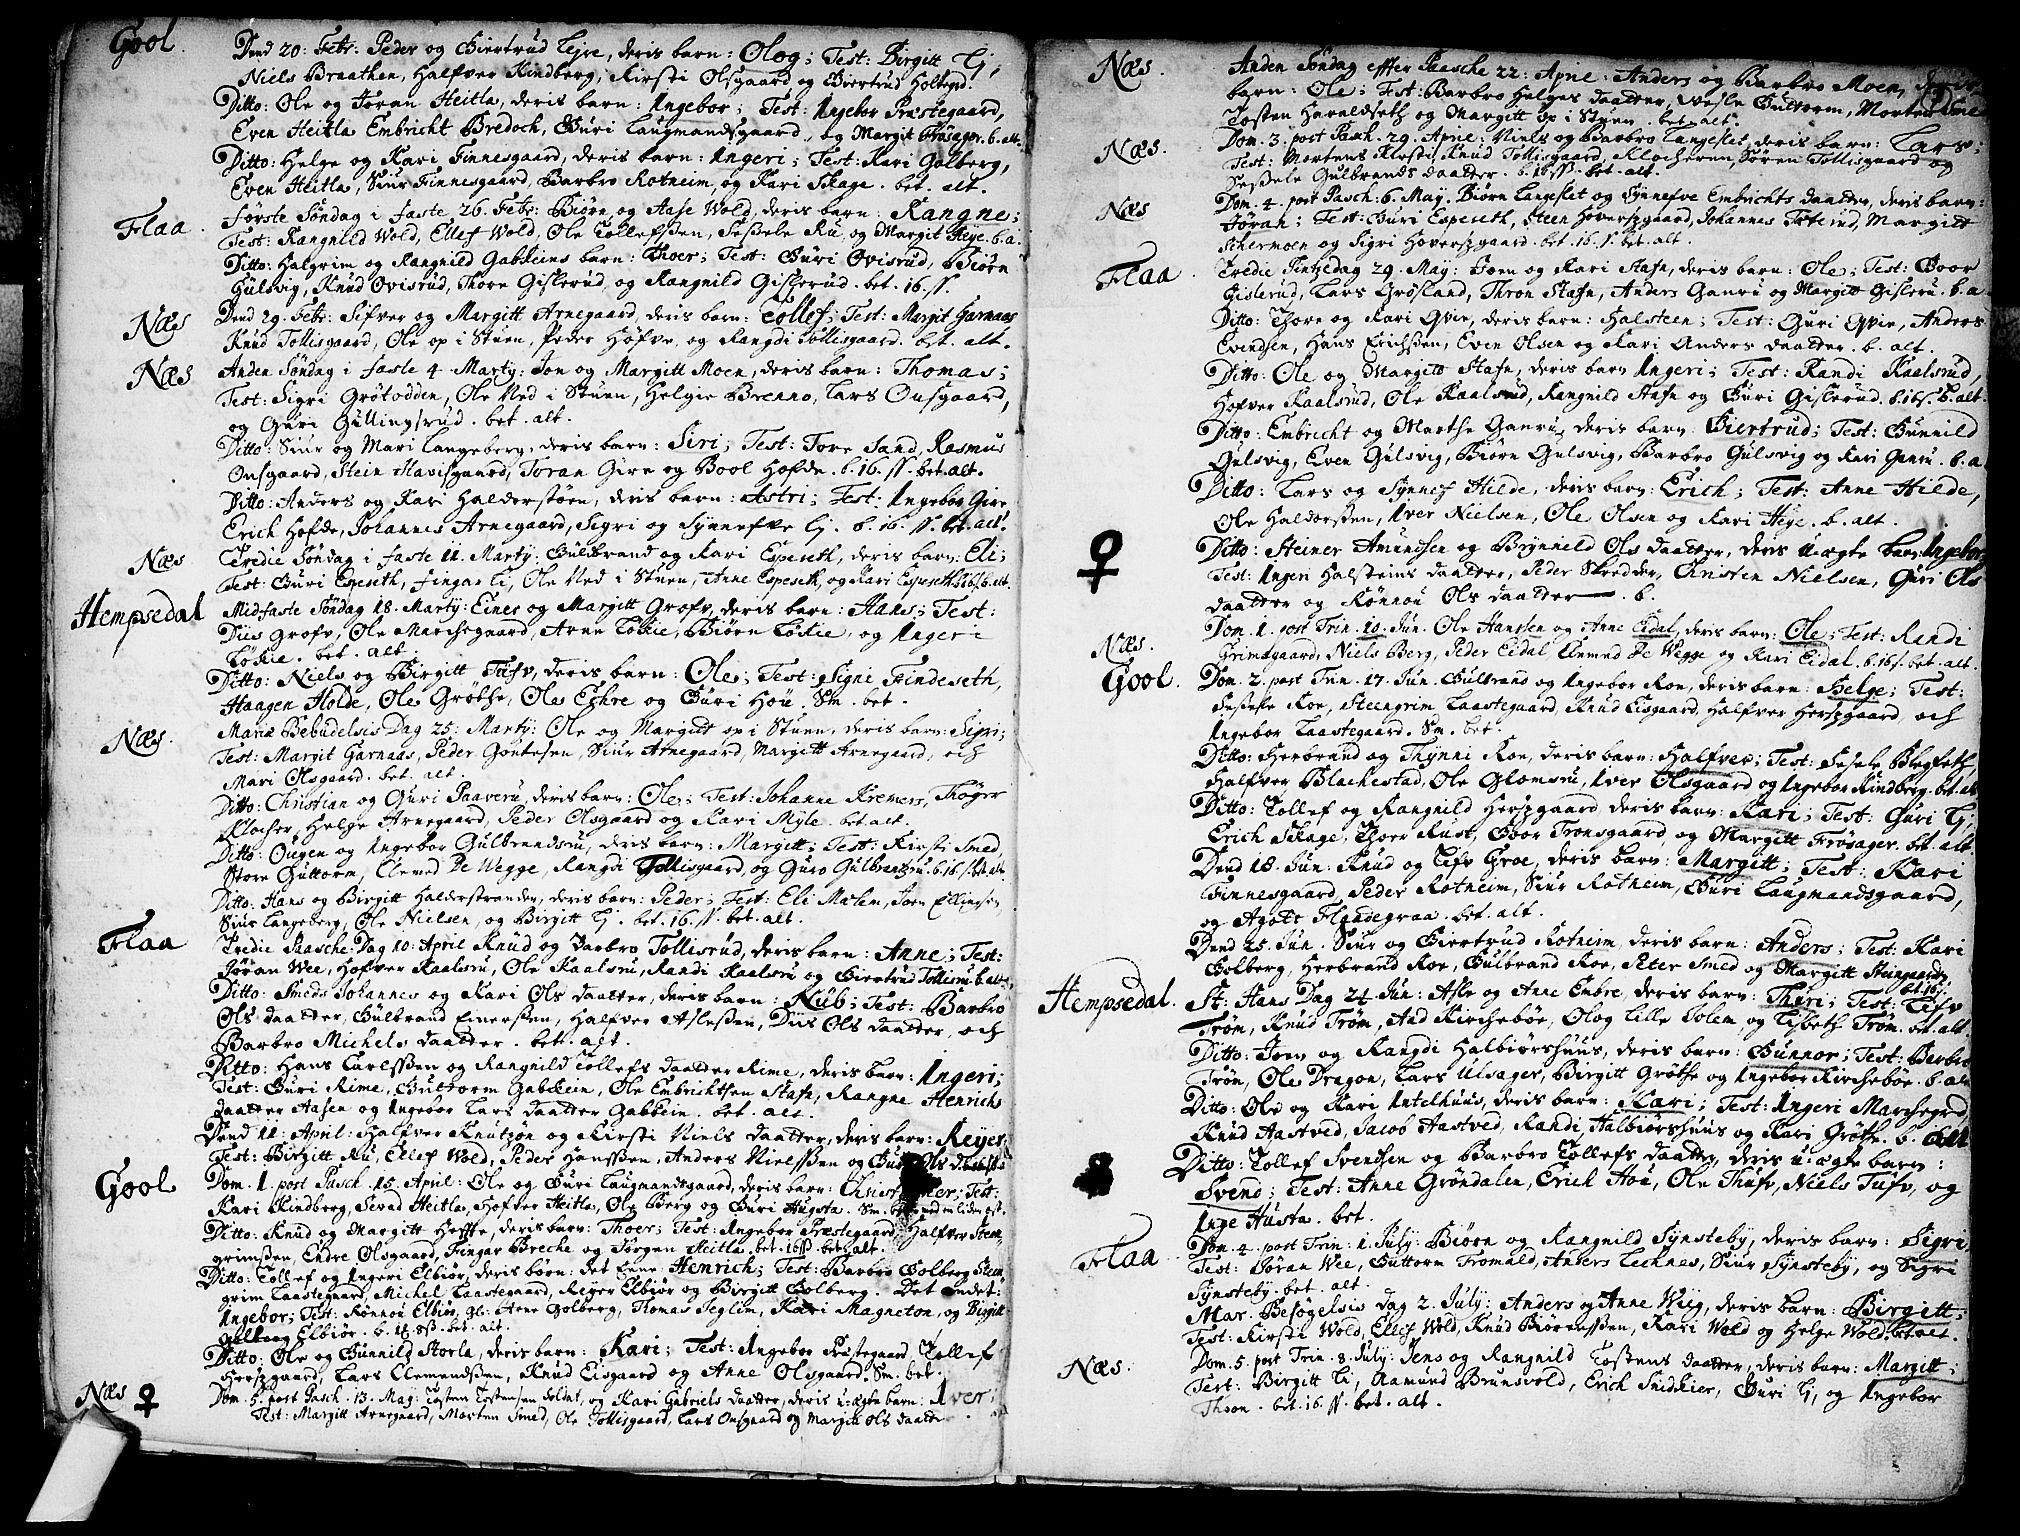 Gool. Dend 20. Febr: Peder og Giertrud Leje, deris barn: Olog; Test: Birgitt Lj,
Niels Braathen, Halfver Kindberg, Kirsti Olsgaard, og Giertrud Holtegd.
Ditto: Ole og Joran Heitla, deris barn: Ingebor; Test: Ingebor Præstegaard,
Even Heitla, Embricht Bredoch, Guri Laugmandsgaard, og Margit Frøsager. b. alt.
Ditto: Helge og Kari Finnesgaard, deris barn: Ingeri; Test: Kari Golberg,
Even Heitla, Siur Finnesgaard, Barbro Rotneim, og Kari Skage. bet. alt.
Flaa. Første Søndag i faste 26. Febr: Biørn og Aase Wold, deris barn: Rangne;
Test: Rangnild Wold, Ellef Wold, Ole Tollefssen, Sessele Ru, og Margit Heye. b. a.
Ditto: Halgrim og Rangnild Gabkeins barn: Thoer; Test: Guri Ovisrud, Biørn
Gulsvig, Knud Ovisrud, Thorn Gislerud, og Rangnild Gislerud. bet. 16. s.
Næs Dend 29. febr: Sifver og Margitt Arnegaard, deris barn: Tollef; Test: Margit Garnaas
Knud Tollisgaard, Ole op i Stuen, Peder Høfve, og Rangdi Tollisgaard. bet. alt.
Næs Anden Søndag i faste 4. Marty: Jon og Margitt Moen, deris barn: Thomas;
Test: Sigri Grøtodden, Ole Ned i Stuen, Helgie Brenno, Lars Onsgaard,
og Guri Gullingsrud. bet. alt.
Ditto: Siur og Mari Langeberg, deris barn: Siri; Test: Tore Sand, Rasmus
Onsgaard, Stein Havisgaard, Joran Gire og Bool Hofde. b. 16. s. bet. alt.
Ditto: Anders og Kari Halderstøen, deris barn: Astri; Test: Ingebor Gire
Erich Hofde, Johannes Arnegaard, Sigri og Synnefve Lj. b. 16. s. bet. alt.
Næs Tredie Søndag i faste 11. Marty. Gulbrand og Kari Espeseth, deris barn: Eli;
Test: Guri Espeseth, fingar Lj, Ole Ned i Stuen, Anne Espeseth, og Kari Espeseth b. alt.
Hempsedal Midfaste Søndag 18. Marty: Einer og Margitt Grofv, deris barn: Hans; Test:
Diis Grofv, Ole Marchegaard, Arne Løkie, Biørn Løkie, og Ingeri
Løkie. bet. alt.
Ditto: Niels og Birgitt Tufv, deris barn: Ole; Test: Signe Findeseth,
Haagen Holde, Ole Grøthe, Ole Echre og Guri Hou. Sm. bet.
Næs. Mariæ Bebudelsis Dag 25. Marty: Ole og Margitt op i Stuen, deris barn: Sigri;
Test: Margit Garnaas, Peder Goutesen, Siur Arnegaard, Margitt Arnegaard, och
Mari Olsgaard. bet. alt.
Ditto: Christian og Guri Paaveru, deris barn: Ole; Test: Johanne Kremers, Thøger
Klocher, Helge Arnegaard, Peder Olsgaard og Kari Myle. bet. alt.
Ditto: Ougen og Ingebor Gulbrandsru, deris barn: Margitt; Test: Kirsti Smed,
Store Guttorm, Clemed De Wegge, Rangdi Tollisgaard, og Guro Gulbrandsru. b. 16 s. bet. alt.
Ditto: Hans og Birgitt Halderstranden, deris barn: Peder; Test: Eli Mælem, Joen Ellingsen,
Siur Langeberg, Ole Nielsen, og Birgitt Lj. bet. 16. s. bet. alt.
Flaa Tredie Paasche Dag 10. April Knud og Barbro Tollisrud, deris barn: Anne; Test:
Jøran Wee, Hofver Kaalsru, Ole Kaalsru, Randi Kaalsru og Giertrud Tollisru. b. alt.
Ditto: Smeds Johannes og Kari Ols daatter, deris barn: Nub; Test: Barbro
Ols daatter, Gulbrand Einerssen, Halfver Aslessen, Diis Ols daatter, och
Barbro Michels daatter. bet. alt.
Ditto: Hans Carlssen og Rangnild Tollefs daatter Rime, deris barn: Ingeri;
Test: Guri Rime, Guttorm Gabkein, Ole Embrichtsen Stafn, Rangne Henrichs
daatter Aasen og Ingebor Lars daatter Gabkein. bet. alt.
Dend 11. April: Halfver Knutzøn og Kirsti Niels daatter, deris barn: Reyer;
Test: Birgitt Ru, Ellef Wold, Peder Hanssen, Anders Nielssen og Guri Ols daatter
Gool Dom. 1. post Pasch. 15. April: Ole og Guri Laugmandsgaard, deris barn: Christopher; Test:
Kari Kindberg, Sevad Heitla, Hofver Heitla, Ole Berg og Guri Hugsta. Sm. bet. med en liden rest.
Ditto: Knud og Margitt Heffte, deris barn: Thoer; Test: Ingebor Præstegaard, Halfver Stein-
grimssen, Endre Olsgaard, Fingar Breche og Jørgen Heitla. bet. 16 s. bet. alt.
Ditto: Tollef og Ingeri Elbiør, deris børn: det Eene Henrich; Test: Barbro Golberg, Stein
grim Laastegaard, Michel Laastegaard, Reyer Elbiør og Birgitt Golberg. Det Andet:
Ingebor; Test: Rønnou Elbiør, Ole Arne Golberg, Thomas Jeglim, Kari Magneton, og Birgitt
Elbiør. b. 18. s. bet. alt.
Ditto: Ole og Gunnild Storla, deris barn: Kari; Test: Ingebor Præstegaard, Tollef
Herszgaard, Lars Clemendsen, Knud Eisgaard og Anne Olsgaard. Sm. bet.
Næs ♀ Dom. 5. post Pasch. 13. May: Tosten Tostensen Soldat, og Kari Gabriels daatter, deris u-ægte barn: Iver;
Test: Margitt Arnegaard, Morten Smed, Ole Tollisgaard, Lars Onsgaard og Margitt Ols daatter.
Næs. Anden Søndag effter Paasche 22. Apr: Anders og Barbro Moen, deris
barn: Ole; Test: Barbro Helges daatter, Vesle Guttorm, Morten Smed
Tosten Haraldseth og Margitt op i Stuen. bet. alt.
Næs. Dom. 3. post Pasch. 29. April: Niels og Barbro Langeslet, deris barn: Lars;
Test: Mortens Kirsti, Knud Tollisgaard, Klocheren, Søren Tollisgaard og
Sessele Gulbrands daatter. b. 16 s. bet. alt.
Næs Dom. 4. post Pasch. 6. May. Biørn Langeslet og Synnefve Embrichts daatter, deris barn:
Jøran; Test: Guri Espeseth, Steen Hoverszgaard, Johannes Trteind, Margitt
Schermoen og Sigri Hoverszgaard. bet. 16. s. bet. alt.
Flaa. Tredie Pintzedag 29. May: Joen og Kari Stafn, deris barn: Ole; Test: Goor
Gislerud, Lars Grøsland, Thron Stafn, Anders Ganru og Margitt Gisleru. b. a
Ditto: Thore og Kari Qvie, deris barn: Halsteen; Test: Guri Qvie, Anders
Evendsen, Hans Erichssen, Even Olsen og Kari Anders daatter. b. alt.
Ditto: Ole og Margitt Stafn, deris barn Ingeri; Test: Randi Kaalsrud,
Hofver Kaalsrud, Ole Kaalsrud, Rangnild Stafn og Guri Gislerud. b. 16 s. b. alt.
Ditto: Embricht og Marthe Ganru, deris barn: Giertrud; Test: Gunnild
Gulsvig, Even Gulsvig, Biørn Gulsvig, Barbro Gulsvig og Kari Ganru. b. a
Ditto: Lars og Synnef Hilde, deris barn: Erich; Test: Anne Hilde,
Ole Haldorssen, Iver Nielsen, Ole Olsen og Kari Heye. b. alt.
♀ Ditto: Steiner Amundsen og Brynnild Ols daatter, deris u-ægte barn: Ingebor;
Test: Ingeri Halsteins daatter, Peder Skredder, Christen Nielsen, Guri Ols
daatter og Rønnou Ols daatter. b.
Næs. Dom. 1. post Trin. 10. Jun. Ole Hanssen og Anne Eidal, deris barn: Ole; Test: Randi
Grimsgaard, Niels Berg, Peder Eidal, Clemed De Wegge og Kari Eidal. b. 16 s. bet. alt.
Gool. Dom. 2. post Trin. 17. Jun. Gulbrand og Ingebor Roe, deris barn: Helge; Test:
Sessele Roe, Steengrim Laastegaard, Knud Eisgaard, Halfver Herszgaard, och
Ingebor Laastegaard. Sm. bet.
Ditto: Herbrand og Thynni Roe, deris barn: Halfver; Test: Sessele Blegseth
Halfver Blachestad, Ole Glomsru, Iver Olsgaard og Ingebor Kindberg. bet. alt
Ditto: Tollef og Rangnild Herszgaard, deris barn: Kari; Test: Guri Lj,
Erich Skage, Thoer Rust, Goor Tronsgaard, og Margitt Frøsager. bet. alt
Dend 18. Jun: Knud og Lifv Groe, deris barn: Margitt; Test: Kari
Finnesgaard, Peder Rotneim, Siur Rotneim, Guri Laugmandsgaard,
og Agott Flandegraa. bet. alt.
Dend 25. Jun. Siur og Giertrud Rotneim, deris barn: Anders; Test: Kari
Golberg, Herbrand Roe, Gulbrand Roe, Peter Smed og Margitt Steingaard
b. 16 s.
Hempsedal. St. Hans Dag 24. Jun: Asle og Anne Embre, deris barn: Thuri; Test: Lifv
Trøm, Knud Trøm, And Kirchebøe, Olog Lille Solem, og Lisbeth Trøm. bet. alt
Ditto: Joen og Rangdi Halbiørshuus, deris barn: Gunnor; Test: Barbro
Trøn, Ole Dragon, Lars Ulsager, Birgitt Grøthe og Ingebor Kirchebøe. b. alt
Ditto: Ole og Kari Intelhuus, deris barn: Kari; Test: Ingeri Marchegrd
Knud Aastved, Jacob Aastved, Randi Halbiørshuus og Kari Grøthe. b. alt
Ditto: Tollef Svendsen og Barbro Tollefs daatter, deris u-ægte barn:
Svend; Test: Anne Grøndalen, Erich Hou, Ole Thufv, Niels Tufv, og
Inge Husta. bet.
Flaa Dom. 4. post Trin: 1. July: Biørn og Rangnild Synsteby, deris barn: Sigri,
Test: Jøran Wee, Guttorm Tromald, Anders Lechnes, Siur Synsteby, og Sigri
Synsteby. bet. alt
Mar. Besøgelsis dag 2. July: Anders og Anne Wiig, deris barn: Birgitt;
Test: Kirsti Wold, Ellef Wold, Knud Biørnssen, Kari Wold og Helge Wold. bet. alt.
Næs. Dom. 5. post Trin. 8. July: Jens og Rangnild Tostens daatter, deris barn: Margitt;
Test: Birgitt Lj, Aamund Brunsvold, Erich Snidkier, Guri Lj, og Ingebor
Thoon. bet. 16. s. bet. alt.